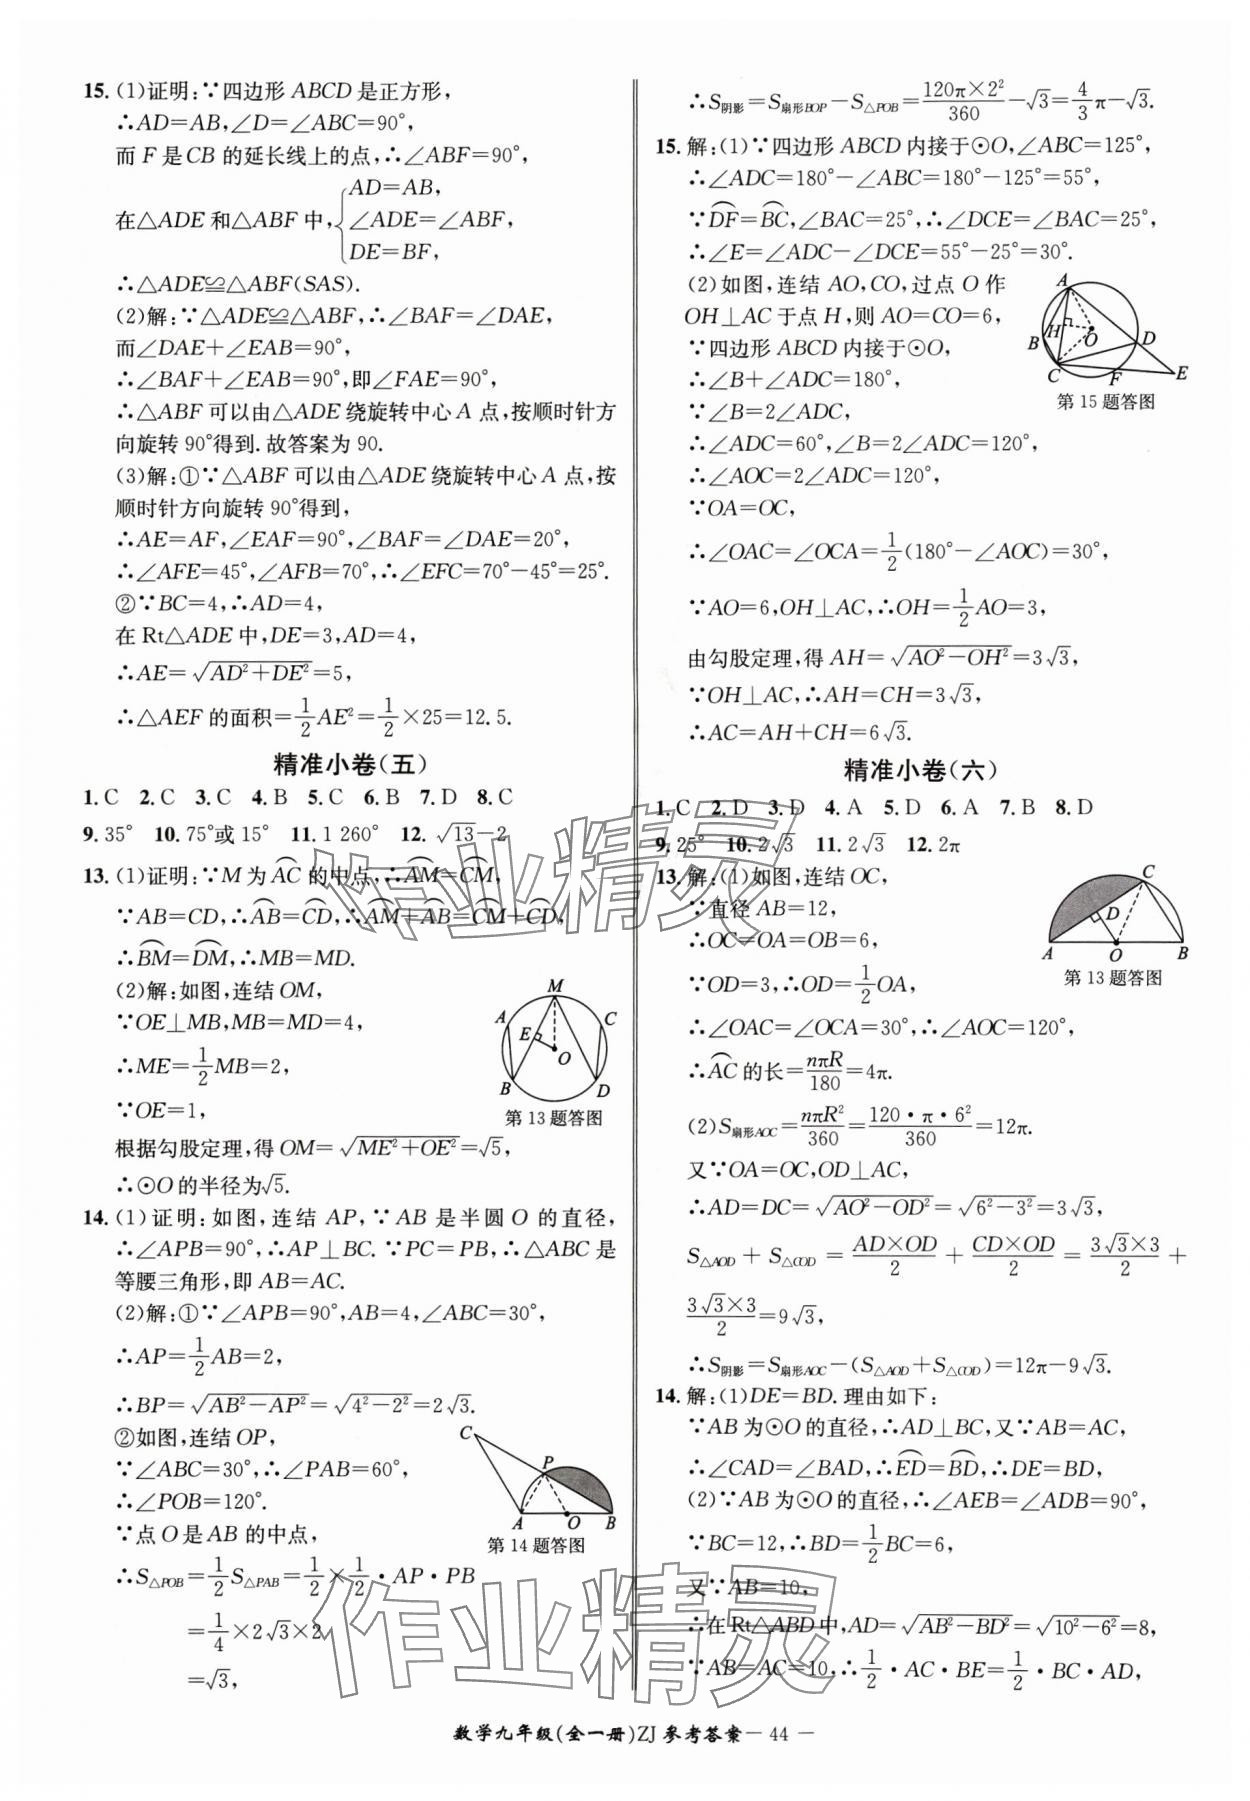 15. (1)证明:∵四边形 ABCD 是正方形,
∴AD=AB,∠D=∠ABC=90°,
而 F 是CB 的延长线上的点,∴∠ABF=90°,
在△ADE 和△ABF 中,{AD=AB,
∠ADE=∠ABF,
DE=BF,
∴△ADE≌△ABF(SAS).
(2)解:∵△ADE≌△ABF,∴∠BAF=∠DAE,
而∠DAE+∠EAB=90°,
∴∠BAF+∠EAB=90°,即∠FAE=90°,
∴△ABF 可以由△ADE 绕旋转中心 A 点,按顺时针方
向旋转 90°得到.故答案为 90.
(3)解:①∵△ABF 可以由△ADE 绕旋转中心 A 点,按
顺时针方向旋转 90°得到,
∴AE=AF,∠EAF=90°,∠BAF=∠DAE=20°,
∴∠AFE=45°,∠AFB=70°,∴∠EFC=70°-45°=25°.
②∵BC=4,∴AD=4,
在 Rt△ADE 中,DE=3,AD=4,
∴AE=√(AD²+DE²)=5,
∴△AEF 的面积=1/2 AE²=1/2×25=12.5.
精准小卷(五)
1. C 2. C 3. C 4. B 5. C 6. B 7. D 8. C
9. 35° 10. 75°或 15° 11. 1 260° 12. √13-2
13. (1)证明:∵M 为 A͡C 的中点,∴A͡M=C͡M,
∵AB=CD,∴A͡B=C͡D,∴A͡M+A͡B=C͡M+C͡D,
∴B͡M=D͡M,∴MB=MD.
(2)解:如图,连结 OM,
∵OE⊥MB,MB=MD=4,
∴ME=1/2 MB=2,
∵OE=1,
M A C E O B D
第 13 题答图
根据勾股定理,得 OM=√(ME²+OE²)=√5,
∴⊙O 的半径为√5.
14. (1)证明:如图,连结 AP,∵AB 是半圆 O 的直径,
∴∠APB=90°,∴AP⊥BC.∵PC=PB,∴△ABC 是
等腰三角形,即 AB=AC.
(2)解:①∵∠APB=90°,AB=4,∠ABC=30°,
∴AP=1/2 AB=2,
∴BP=√(AB²-AP²)=√(4²-2²)=2√3.
②如图,连结 OP,
∵∠ABC=30°,∴∠PAB=60°,
∴∠POB=120°.
∵点 O 是 AB 的中点,
C P A O B
第 14 题答图
∴S△POB=1/2 S△PAB=1/2×1/2·AP·PB
=1/4×2√3×2
=√3,
∴S阴影=S扇形BOP-S△POB=120π×2²/360-√3=4/3π-√3.
15. 解:(1)∵四边形 ABCD 内接于⊙O,∠ABC=125°,
∴∠ADC=180°-∠ABC=180°-125°=55°,
∵D͡F=B͡C,∠BAC=25°,∴∠DCE=∠BAC=25°,
∴∠E=∠ADC-∠DCE=55°-25°=30°.
(2)如图,连结 AO,CO,过点 O 作
OH⊥AC 于点 H,则 AO=CO=6,
∵四边形 ABCD 内接于⊙O,
∴∠B+∠ADC=180°,
∵∠B=2∠ADC,
A H O B D C F E
第 15 题答图
∴∠ADC=60°,∠B=2∠ADC=120°,
∴∠AOC=2∠ADC=120°,
∵OA=OC,
∴∠OAC=∠OCA=1/2(180°-∠AOC)=30°,
∵AO=6,OH⊥AC,∴OH=1/2 AO=3,
由勾股定理,得 AH=√(AO²-OH²)=3√3,
∵OH⊥AC,∴AH=CH=3√3,
∴AC=AH+CH=6√3.
精准小卷(六)
1. C 2. D 3. D 4. A 5. D 6. A 7. B 8. D
9. 25° 10. 2√3 11. 2√3 12. 2π
13. 解:(1)如图,连结 OC,
∵直径 AB=12,
∴OC=OA=OB=6,
∵OD=3,∴OD=1/2 OA,
C D A O B
第 13 题答图
∴∠OAC=∠OCA=30°,∴∠AOC=120°,
∴A͡C 的长=nπR/180=4π.
(2)S扇形AOC=nπR²/360=120·π·6²/360=12π.
又∵OA=OC,OD⊥AC,
∴AD=DC=√(AO²-OD²)=√(6²-3²)=3√3,
S△AOD+S△COD=AD×OD/2+CD×OD/2=3√3×3/2+
3√3×3/2=9√3,
∴S阴影=S扇形AOC-(S△AOD+S△COD)=12π-9√3.
14. 解:(1)DE=BD.理由如下:
∵AB 为⊙O 的直径,∴AD⊥BC,又∵AB=AC,
∴∠CAD=∠BAD,∴E͡D=B͡D,∴DE=BD,
(2)∵AB 为⊙O 的直径,∴∠AEB=∠ADB=90°,
∵BC=12,∴BD=1/2 BC=6,
又∵AB=10,
∴在 Rt△ABD 中,AD=√(AB²-BD²)=√(10²-6²)=8,
∵AB=AC=10,∴1/2·AC·BE=1/2·BC·AD,
作业精灵
作业精灵
数学九年级(全一册)ZJ 参考答案— 44 —